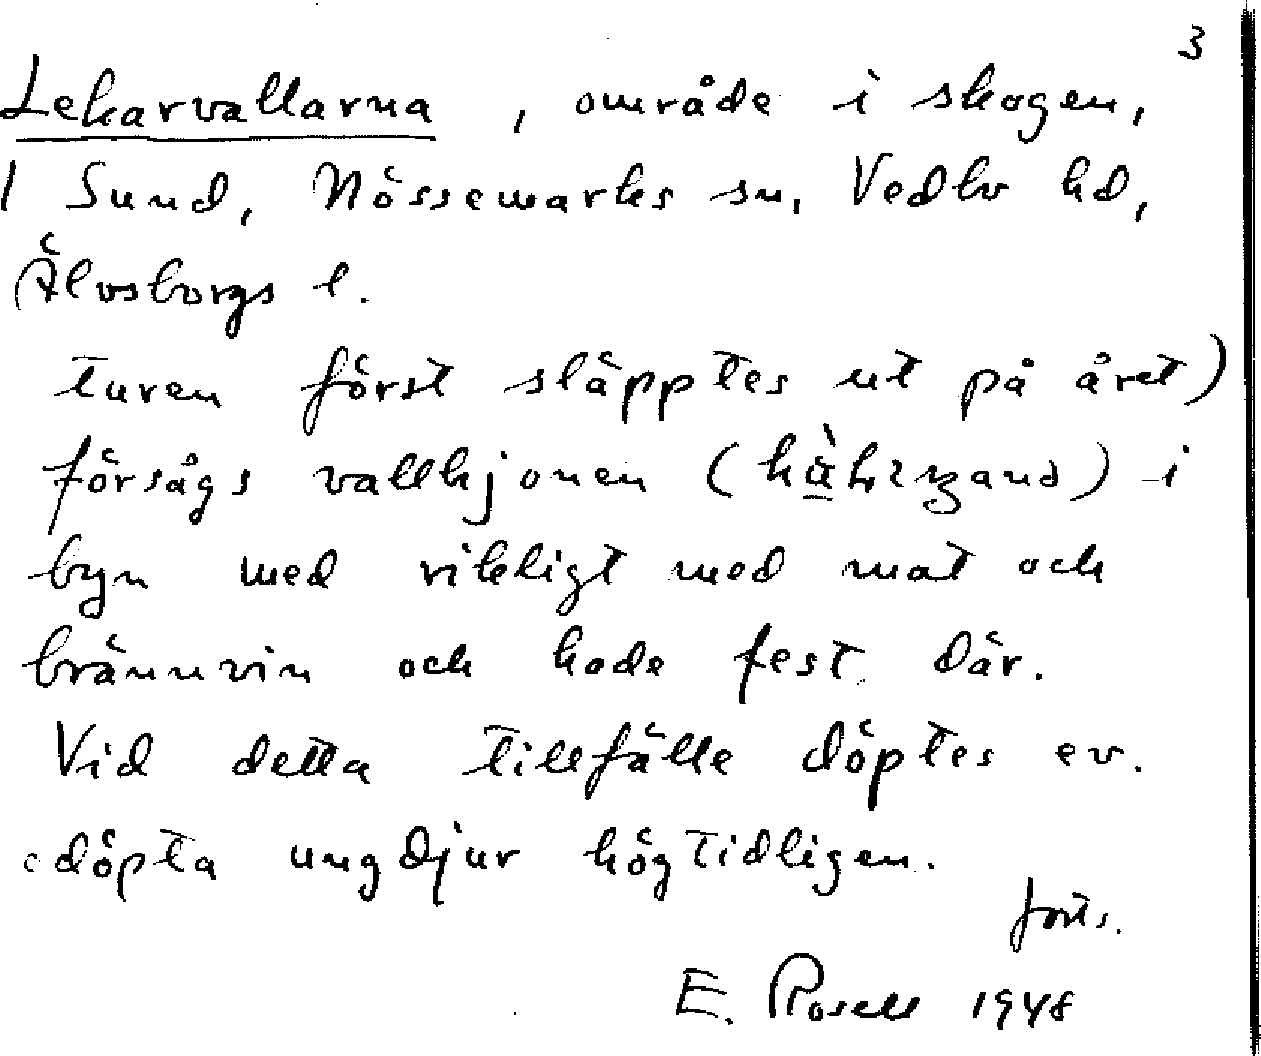 3
Lekarvallarna, område i skogen,
/ Sund, Nössemarks sn, Vedbo hd,
Älvsborgs l.
turen först släpptes ut på året)
försågs vallhjonen ( ) i
byn med rikligt med mat och
brännvin och hade fest där.
Vid detta tillfälle döptes ev.
odöpta ungdjur högtidligen.
forts.
E. Rosell 1948